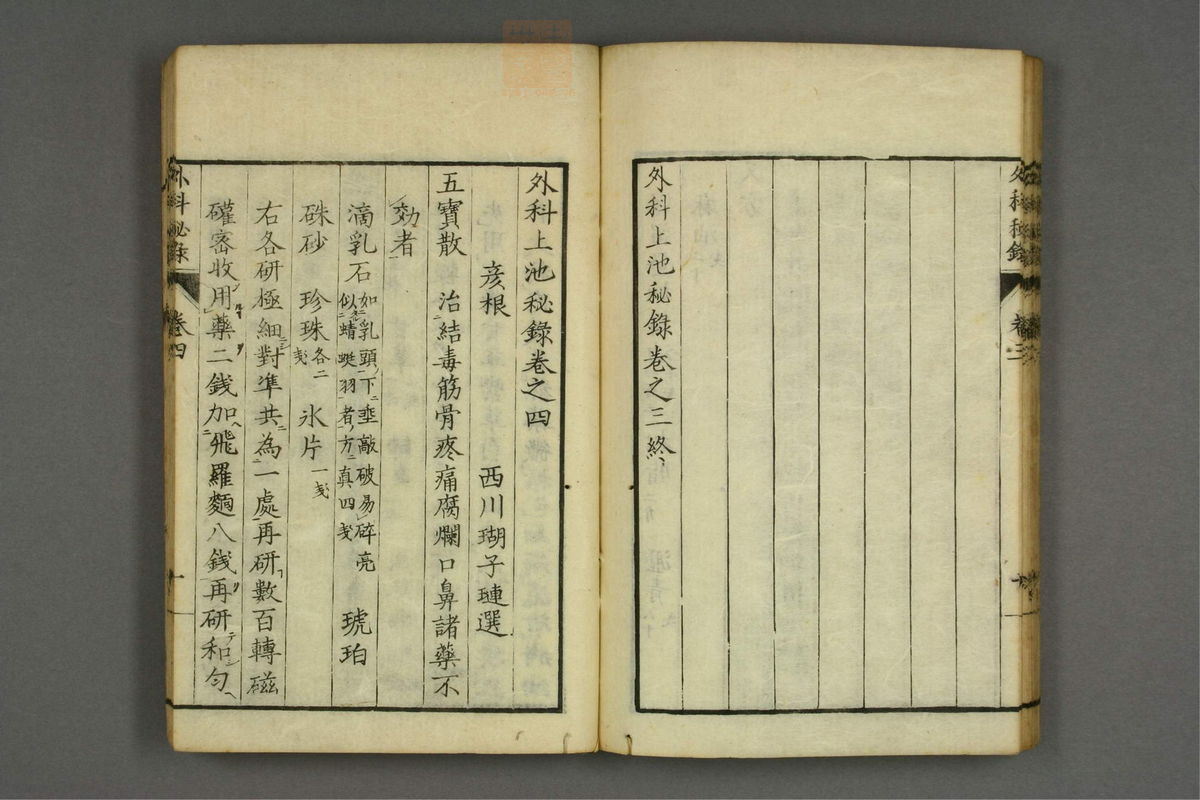 外科秘錄 卷三
外科上池秘錄卷之三終
外科上池秘錄卷之四
彦根 西川瑚子璉選
五寶散 治結毒筋骨疼痛腐爛口鼻諸藥不
効者
滴乳石 如乳頭下垂敲破易碎亮似蜻蜓羽者方真四戔 琥珀
硃砂 珍珠各二戔 氷片一戔
右各研極細對準共為一處再研數百轉磁
礶密收用藥二錢加飛羅麵八錢再研和匀
外科秘錄 卷四 一